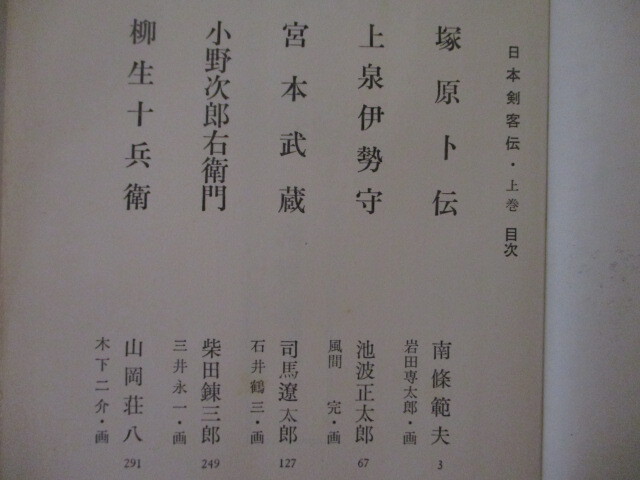 日本剣客伝・上巻 目次
塚原卜伝 南條範夫 3
岩田専太郎・画
上泉伊勢守 池波正太郎 67
風間 完・画
宮本武蔵 司馬遼太郎 127
石井鶴三・画
小野次郎右衛門 柴田錬三郎 249
三井永一・画
柳生十兵衛 山岡荘八 291
木下二介・画